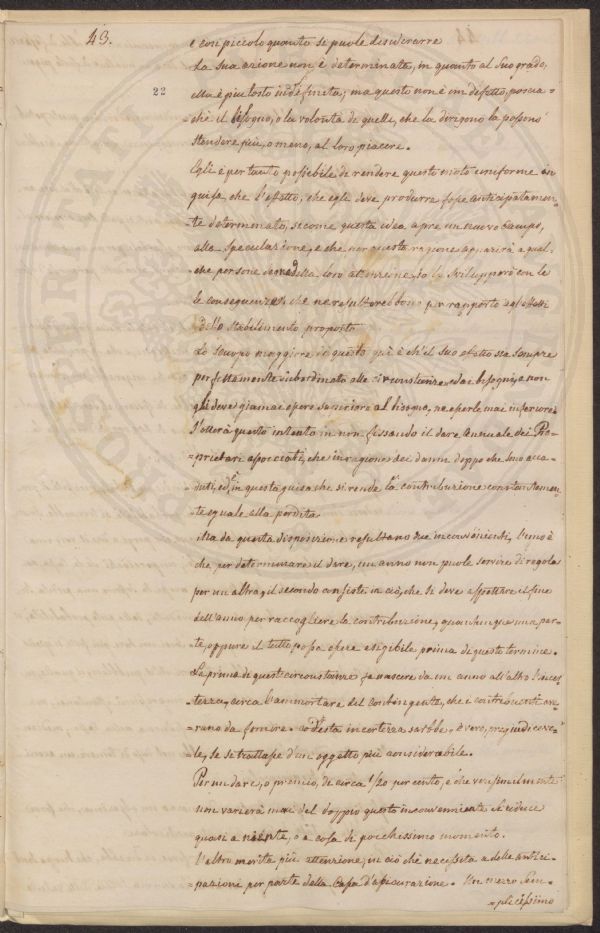 43.
e così piccolo quanto si puole desiderarre
La sua azione non è determinata, in quanto al Suo grado,
22
ella è piu tosto indefinita; ma questo non è un defetto, poscia
=chè il besogno, o la volontà de quelli, che la dirigono la possono
stendere più, o meno, al loro piacere.
Egli è per tanto possiebile di rendere questo moto uniforme in
guisa che l'effetto, che egli deve produrre fosse anticipatamen=
=te determinato, siccome questa idea apre un nuovo Campo,
alla Speculazione, e che per questa ragione apparirà a qual=
=che persone degna della loro attenzione, io la Svilupperò con le
le conseguenze, che ne resultorebbono per rapporto agl'effetti
dello Stabilimento proposto
Lo Scuopo maggiore in questo quì è ch'il Suo effetto sia Sempre
perfettamente subordinato alle circonstanze, ed ai bisogni, e non
gli deve giamai essere Superiore al bisogno, ne esserle mai inferiore.
S'otterà questo intento in non fissando il dare Annuale dei Pro=
=prietari associati, che in ragione dei danni doppo che Sono acca=
=duti, ed in questa guisa che si renda la contribuzione constantemen=
=te eguale alla perdita
Ma da questa disposizione resultano due inconvenienti, l'uno è
che per determinare il dare, un anno non puole servire di regola
per un altro, il secondo consiste in ciò, che Si deve aspettare il fine
dell'anno per raccogliere la contribuzione, quantunque una par=
=te, oppure il tutto, possa essere esegibile prima di questo termine.
La prima di queste circonstanze fa nascere da un anno all'altro l'incer=
=tezza, circa l'ammontare del Contingente, che i contribuenti av=
=rano da fornire. codesta incertezza sarebbe, è vero, pregiudiceve=
=le, se se trattasse d'un oggetto più considerabile.
Per un dare, o premio, di circa 1/20 per cento, e che verisimilmente
non varierà mai del doppio questo inconveniente Si reduce
quasi a niente, o a cosa di pocchissimo momento.
L'altro merita più attenzione, in ciò che necessita a delle antici=
=pazioni per parte della Cassa d'assicurazione. Un mezzo Sem=
=plicissimo